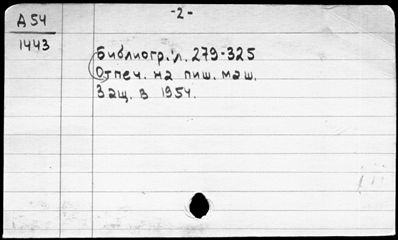 Д 54
-2-
1443
Библиогр.: л. 279-325
Отпеч. на пиш. маш.
Защ. в 1954.